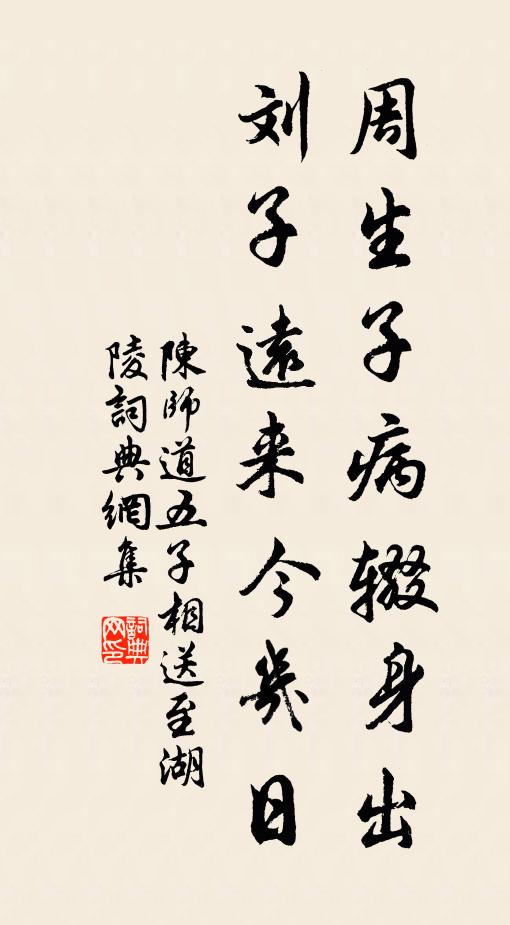 周生子病辍身出
刘子遠来今幾日
陳師道五子相送至湖
陵詞典網集
詞典网印